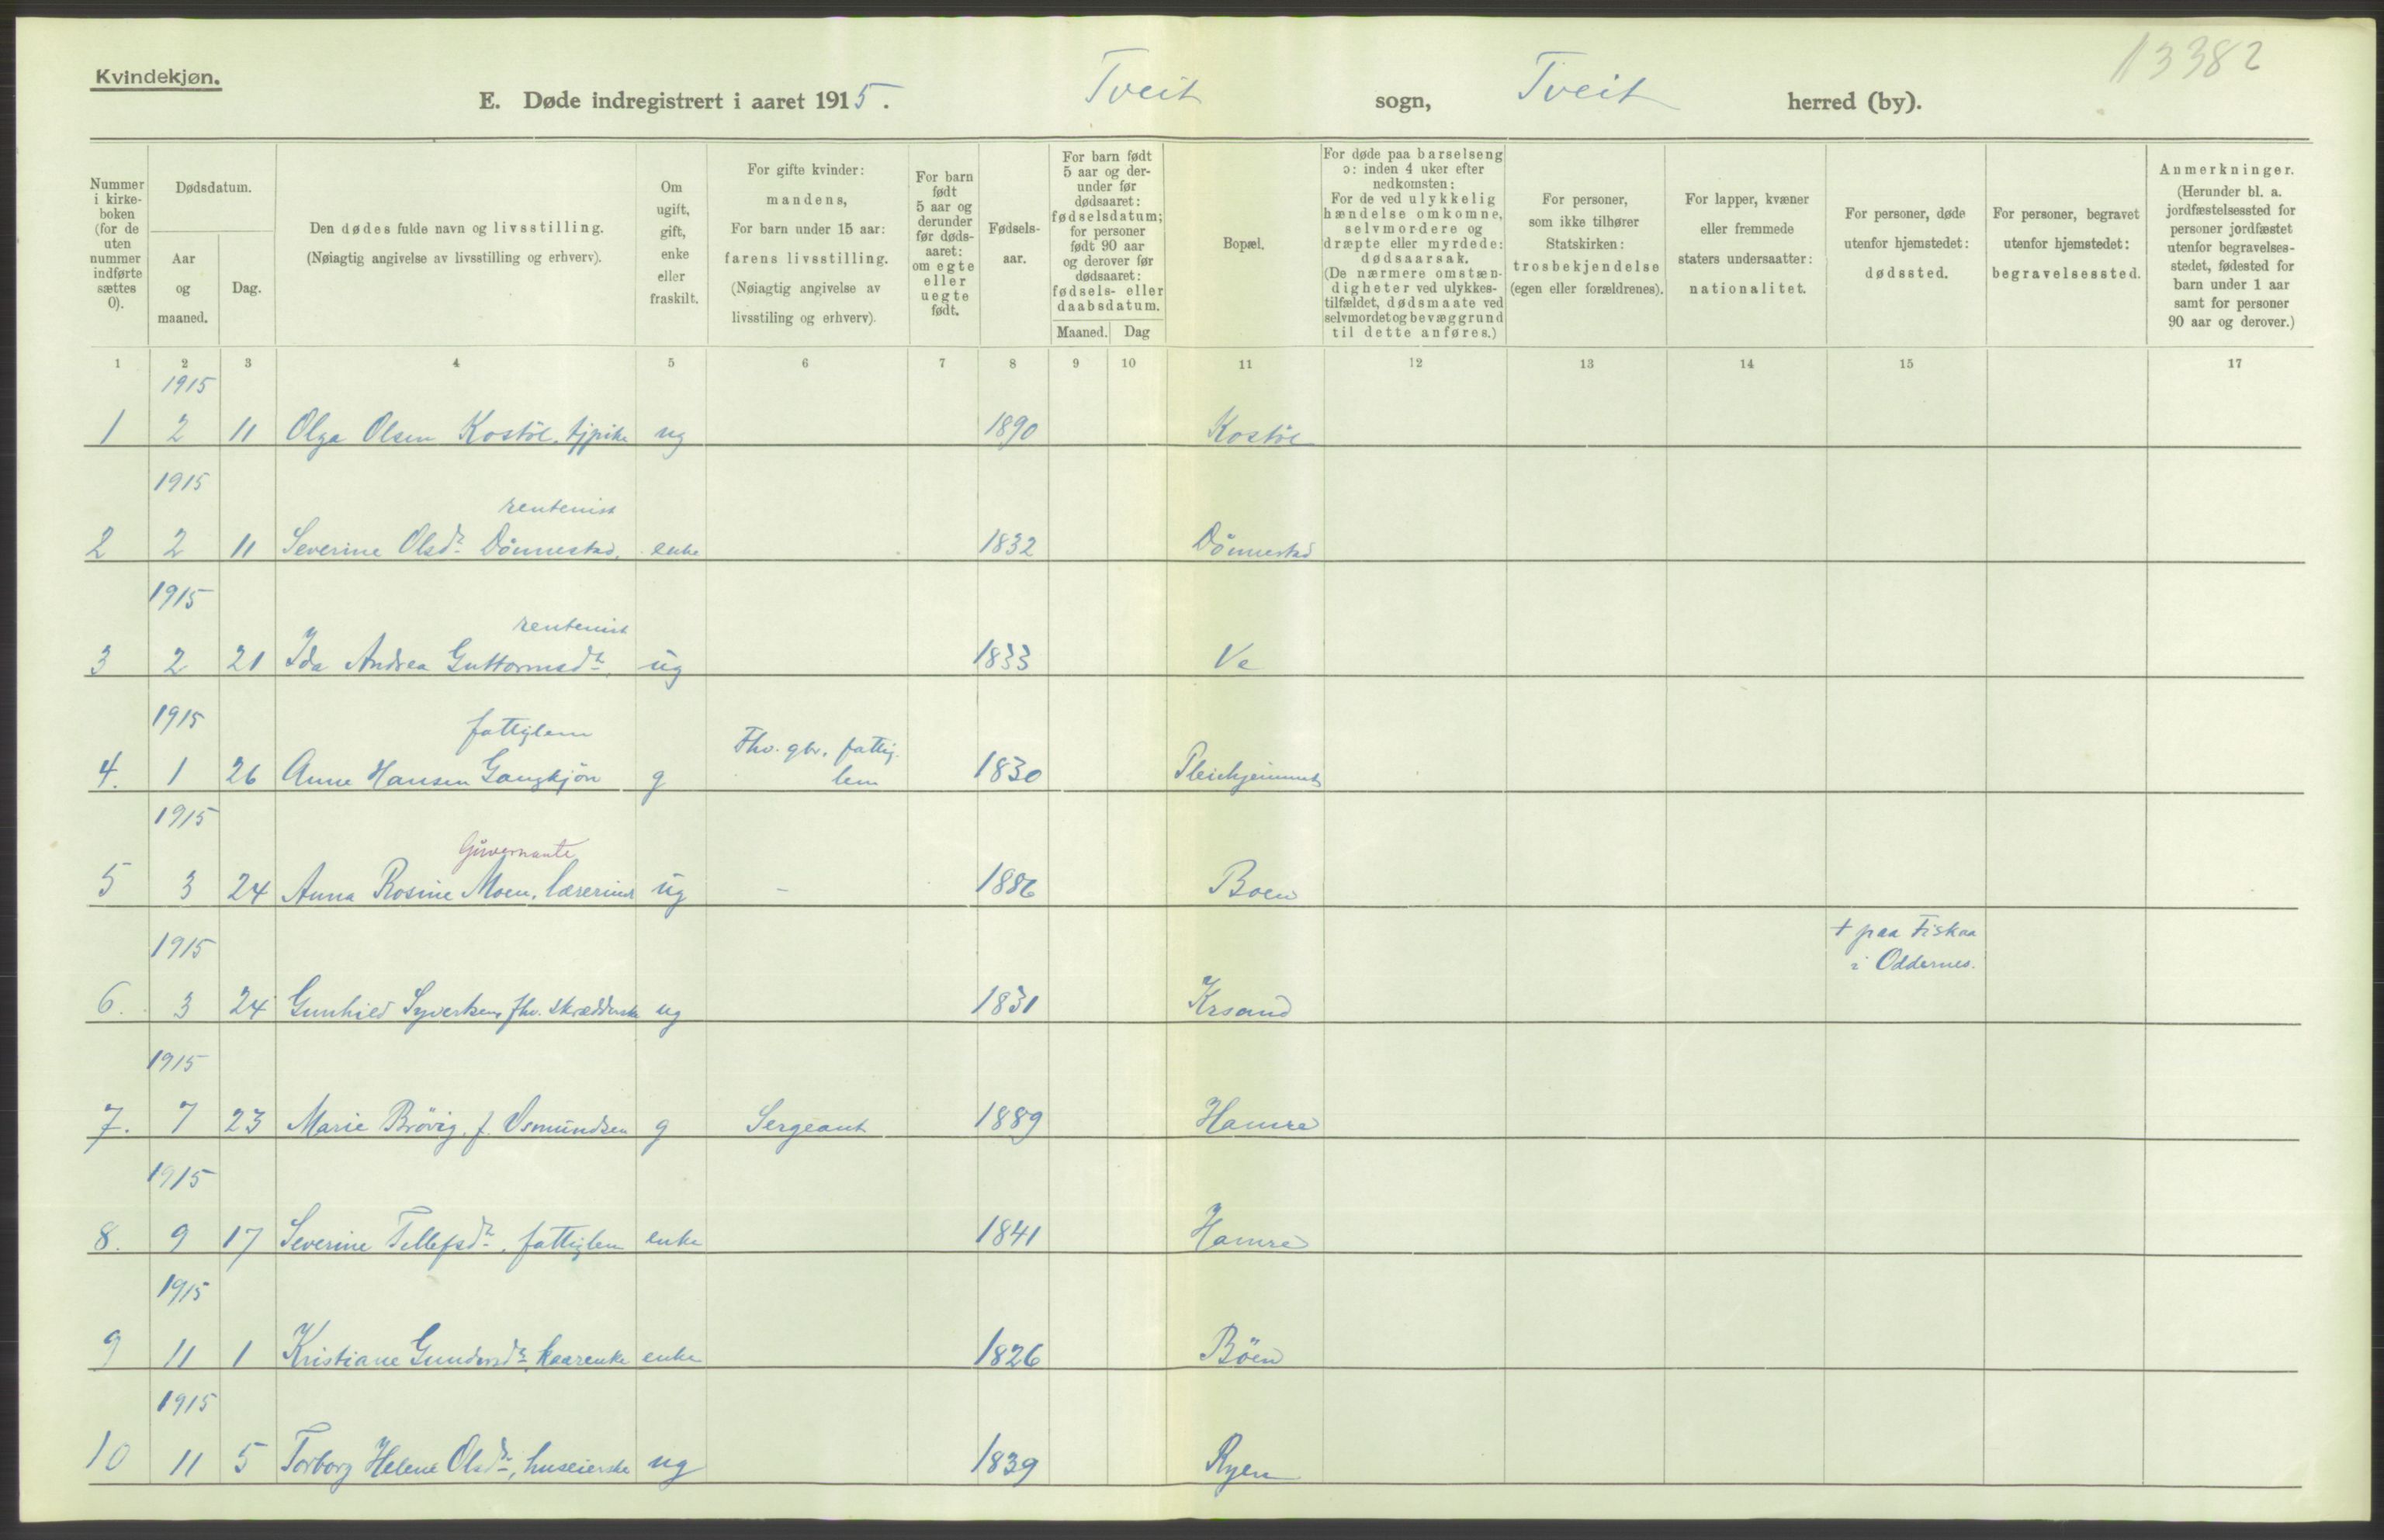 13382
Kvindekjøn.
E. Døde indregistrert i aaret 1915. Tveit sogn, Tveit herred (by).
Nummer
i kirke-
boken
(for de
uten
nummer
indførte
sættes
0).
Dødsdatum.
Aar
og
maaned.
Dag.
Den dødes fulde navn og livsstilling.
(Nøiagtig angivelse av livsstilling og erhverv).
Om
ugift,
gift,
enke
eller
fraskilt.
For gifte kvinder:
mandens,
For barn under 15 aar:
farens livsstilling.
(Nøiagtig angivelse av
livsstiling og erhverv).
For barn
født
5 aar og
derunder
før døds-
aaret:
om egte
eller
uegte
født.
Fødsels-
aar.
For barn født
5 aar og der-
under før
dødsaaret:
fødselsdatum;
for personer
født 90 aar
og derover før
dødsaaret:
fødsels- eller
daabsdatum.
Maaned. Dag
Bopæl.
For døde paa barselseng
ɔ: inden 4 uker efter
nedkomsten:
For de ved ulykkelig
hændelse omkomne,
selvmordere og
dræpte eller myrdede:
dødsaarsak.
(De nærmere omstæn-
digheter ved ulykkes-
tilfældet, dødsmaate ved
selvmordet og bevæggrund
til dette anføres.)
For personer,
som ikke tilhører
Statskirken:
trosbekjendelse
(egen eller forældrenes).
For lapper, kvæner
eller fremmede
staters undersaatter:
nationalitet.
For personer, døde
utenfor hjemstedet:
dødssted.
For personer, begravet
utenfor hjemstedet:
begravelsessted.
Anmerkninger.
(Herunder bl. a.
jordfæstelsessted for
personer jordfæstet
utenfor begravelses-
stedet, fødested for
barn under 1 aar
samt for personer
90 aar og derover.)
1 2 3 4 5 6 7 8 9 10 11 12 13 14 15 17
1915
1 2 11 Olga Olsen Kostöl, tjpike ug 1890 Kostöl
1915
rentenist
2 2 11 Severine Olsdr Dönnestad, enke 1832 Dönnestad
1915
rentenist
3 2 21 Ida Andrea Guttormsdr, ug 1833 Ve
1915
fattiglem Fhv. gbr. fattig-
4. 1 26 Anne Hansen Gangkjön g lem 1830 Pleiehjemmet
1915
Guvernante
5 3 24 Anna Rosine Moen, lærerinde ug - 1886 Boen
1915 + paa Fiskaa
i Oddernes.
6. 3 24 Gunhild Syvertsen, fhv. skrædderske ug 1831 Krsand
1915
7. 7 23 Marie Brövig, f. Osmundsen g Sergeant 1889 Hamre
1915
8. 9 17 Severine Tellefsdr, fattiglem enke 1841 Hamre
1915
9 11 1 Kristiane Gundersdr, kaarenke enke 1826 Böen
1915
10 11 5 Torborg Helene Olsdr, huseierske ug 1839 Ryen